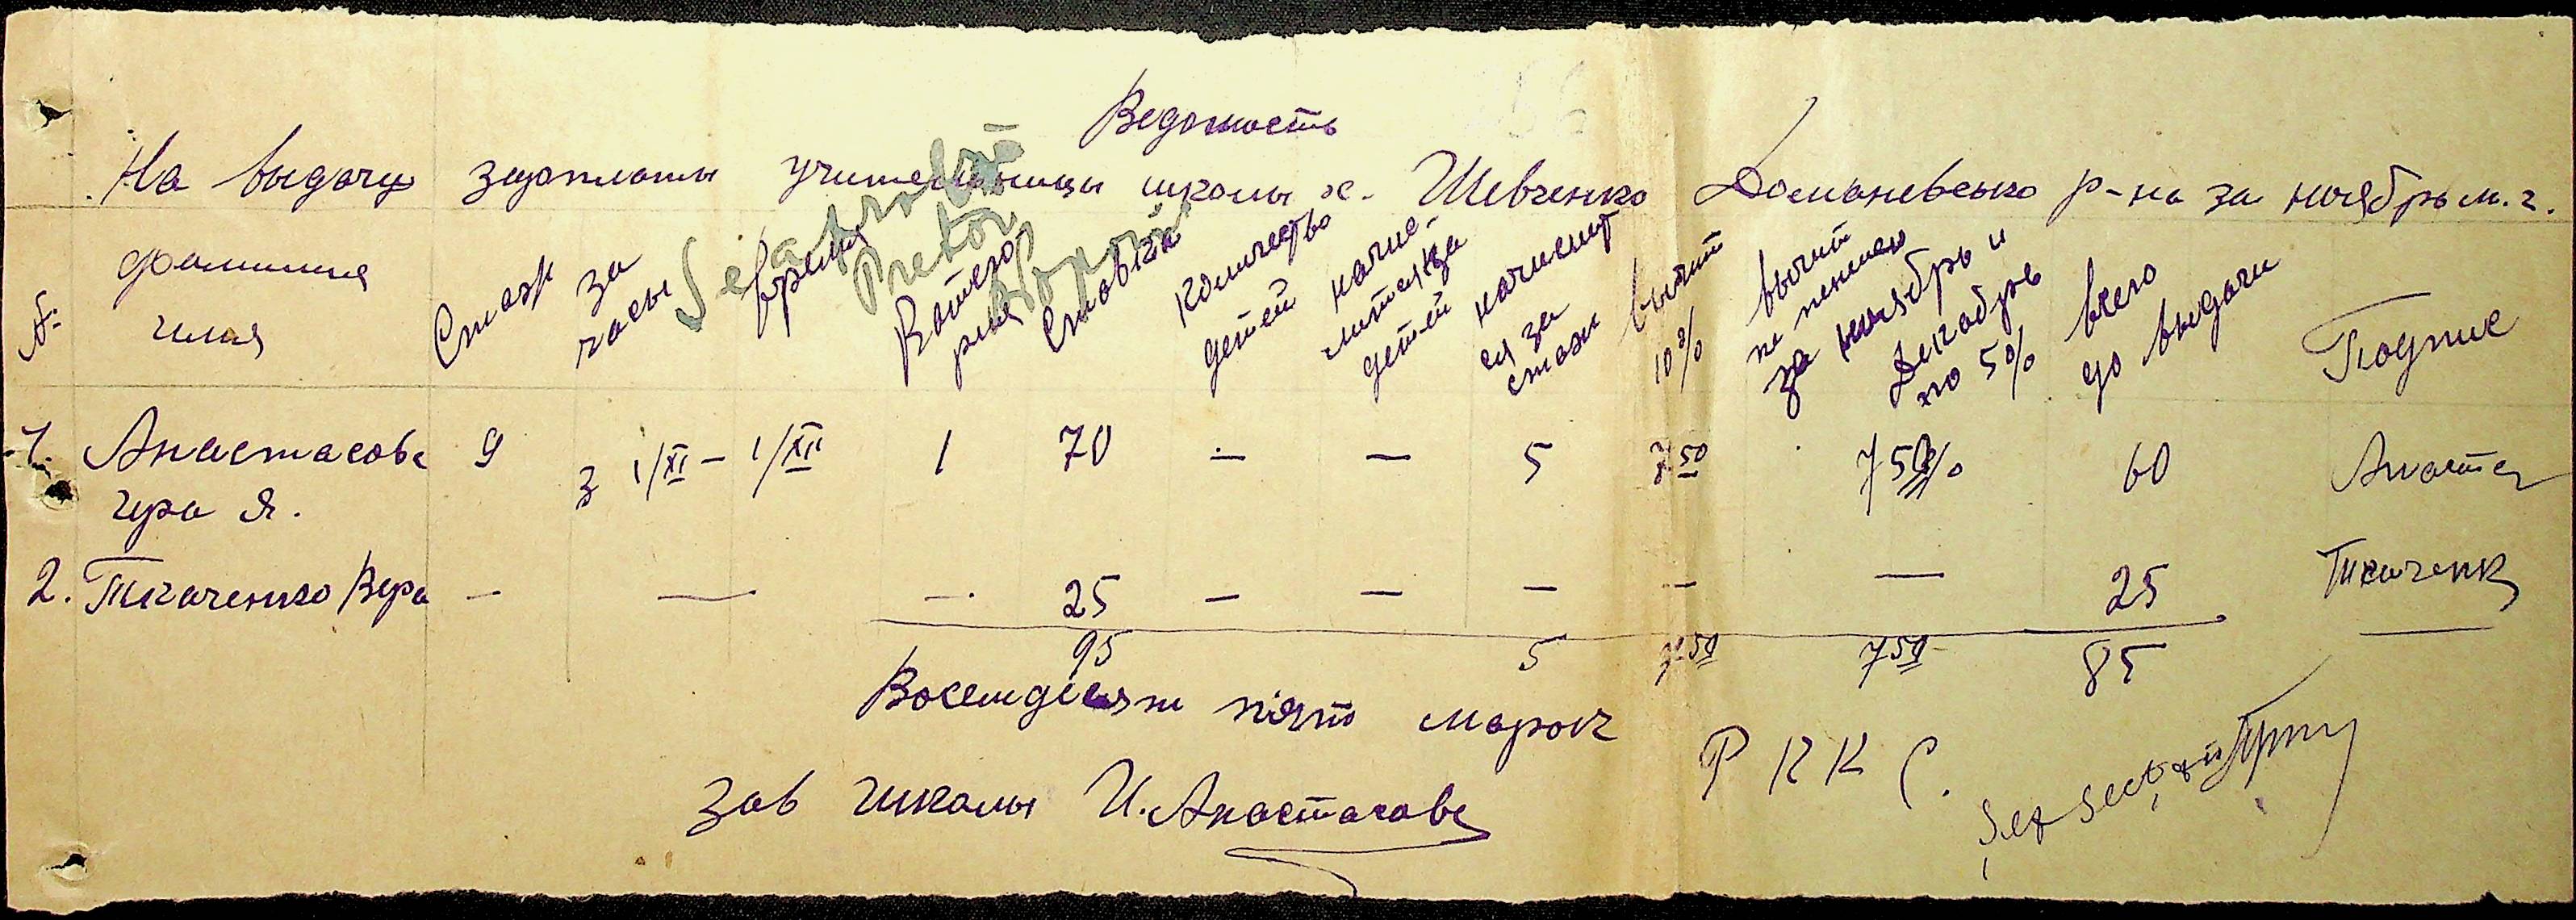 Ведомость
На выдачу зарплаты учительницы школы х. Шевченко Доманевсько р-на за ноябрь м. г.
№ фамилия имя Стаж за часы время Категория ставка количество детей начис. за детей начислит за стаж вычит 10% вычит за ноябрь и декабрь по 5% всего до выдачи Подпис
Pretor
1. Анастасова 9 з 1/XI – 1/XII 1 70 — — 5 7 50 7 50 60 Анаста
Ира Я.
2. Ткаченко Вера — — — 25 — — — — — 25 Ткаченк
95 5 7 50 7 50 85
Восемдесят пять марок
Зав школы И. Анастасова
Р К К С.
Șef Secț.